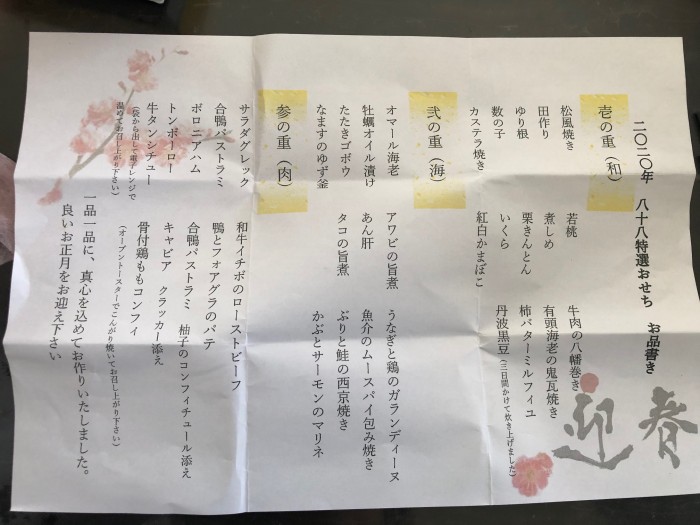 二〇二〇年 八十八特選おせち お品書き
迎春
壱の重（和）
松風焼き 若桃 牛肉の八幡巻き
田作り 煮しめ 有頭海老の鬼瓦焼き
ゆり根 栗きんとん 柿バターミルフィユ
数の子 いくら 丹波黒豆（三日間かけて炊き上げました）
カステラ焼き 紅白かまぼこ
弐の重（海）
オマール海老 アワビの旨煮 うなぎと鶏のガランディーヌ
牡蠣オイル漬け あん肝 魚介のムースパイ包み焼き
たたきゴボウ タコの旨煮 ぶりと鮭の西京焼き
なますのゆず釜 かぶとサーモンのマリネ
参の重（肉）
サラダグレック 和牛イチボのローストビーフ
合鴨パストラミ 鴨とフォアグラのパテ
ボロニアハム 合鴨パストラミ 柚子のコンフィチュール添え
トンポーロー キャビア クラッカー添え
牛タンシチュー 骨付鶏ももコンフィ
（袋から出して電子レンジで温めてお召し上がり下さい） （オーブントースターでこんがり焼いてお召し上がり下さい）
一品一品に、真心を込めてお作りいたしました。
良いお正月をお迎え下さい